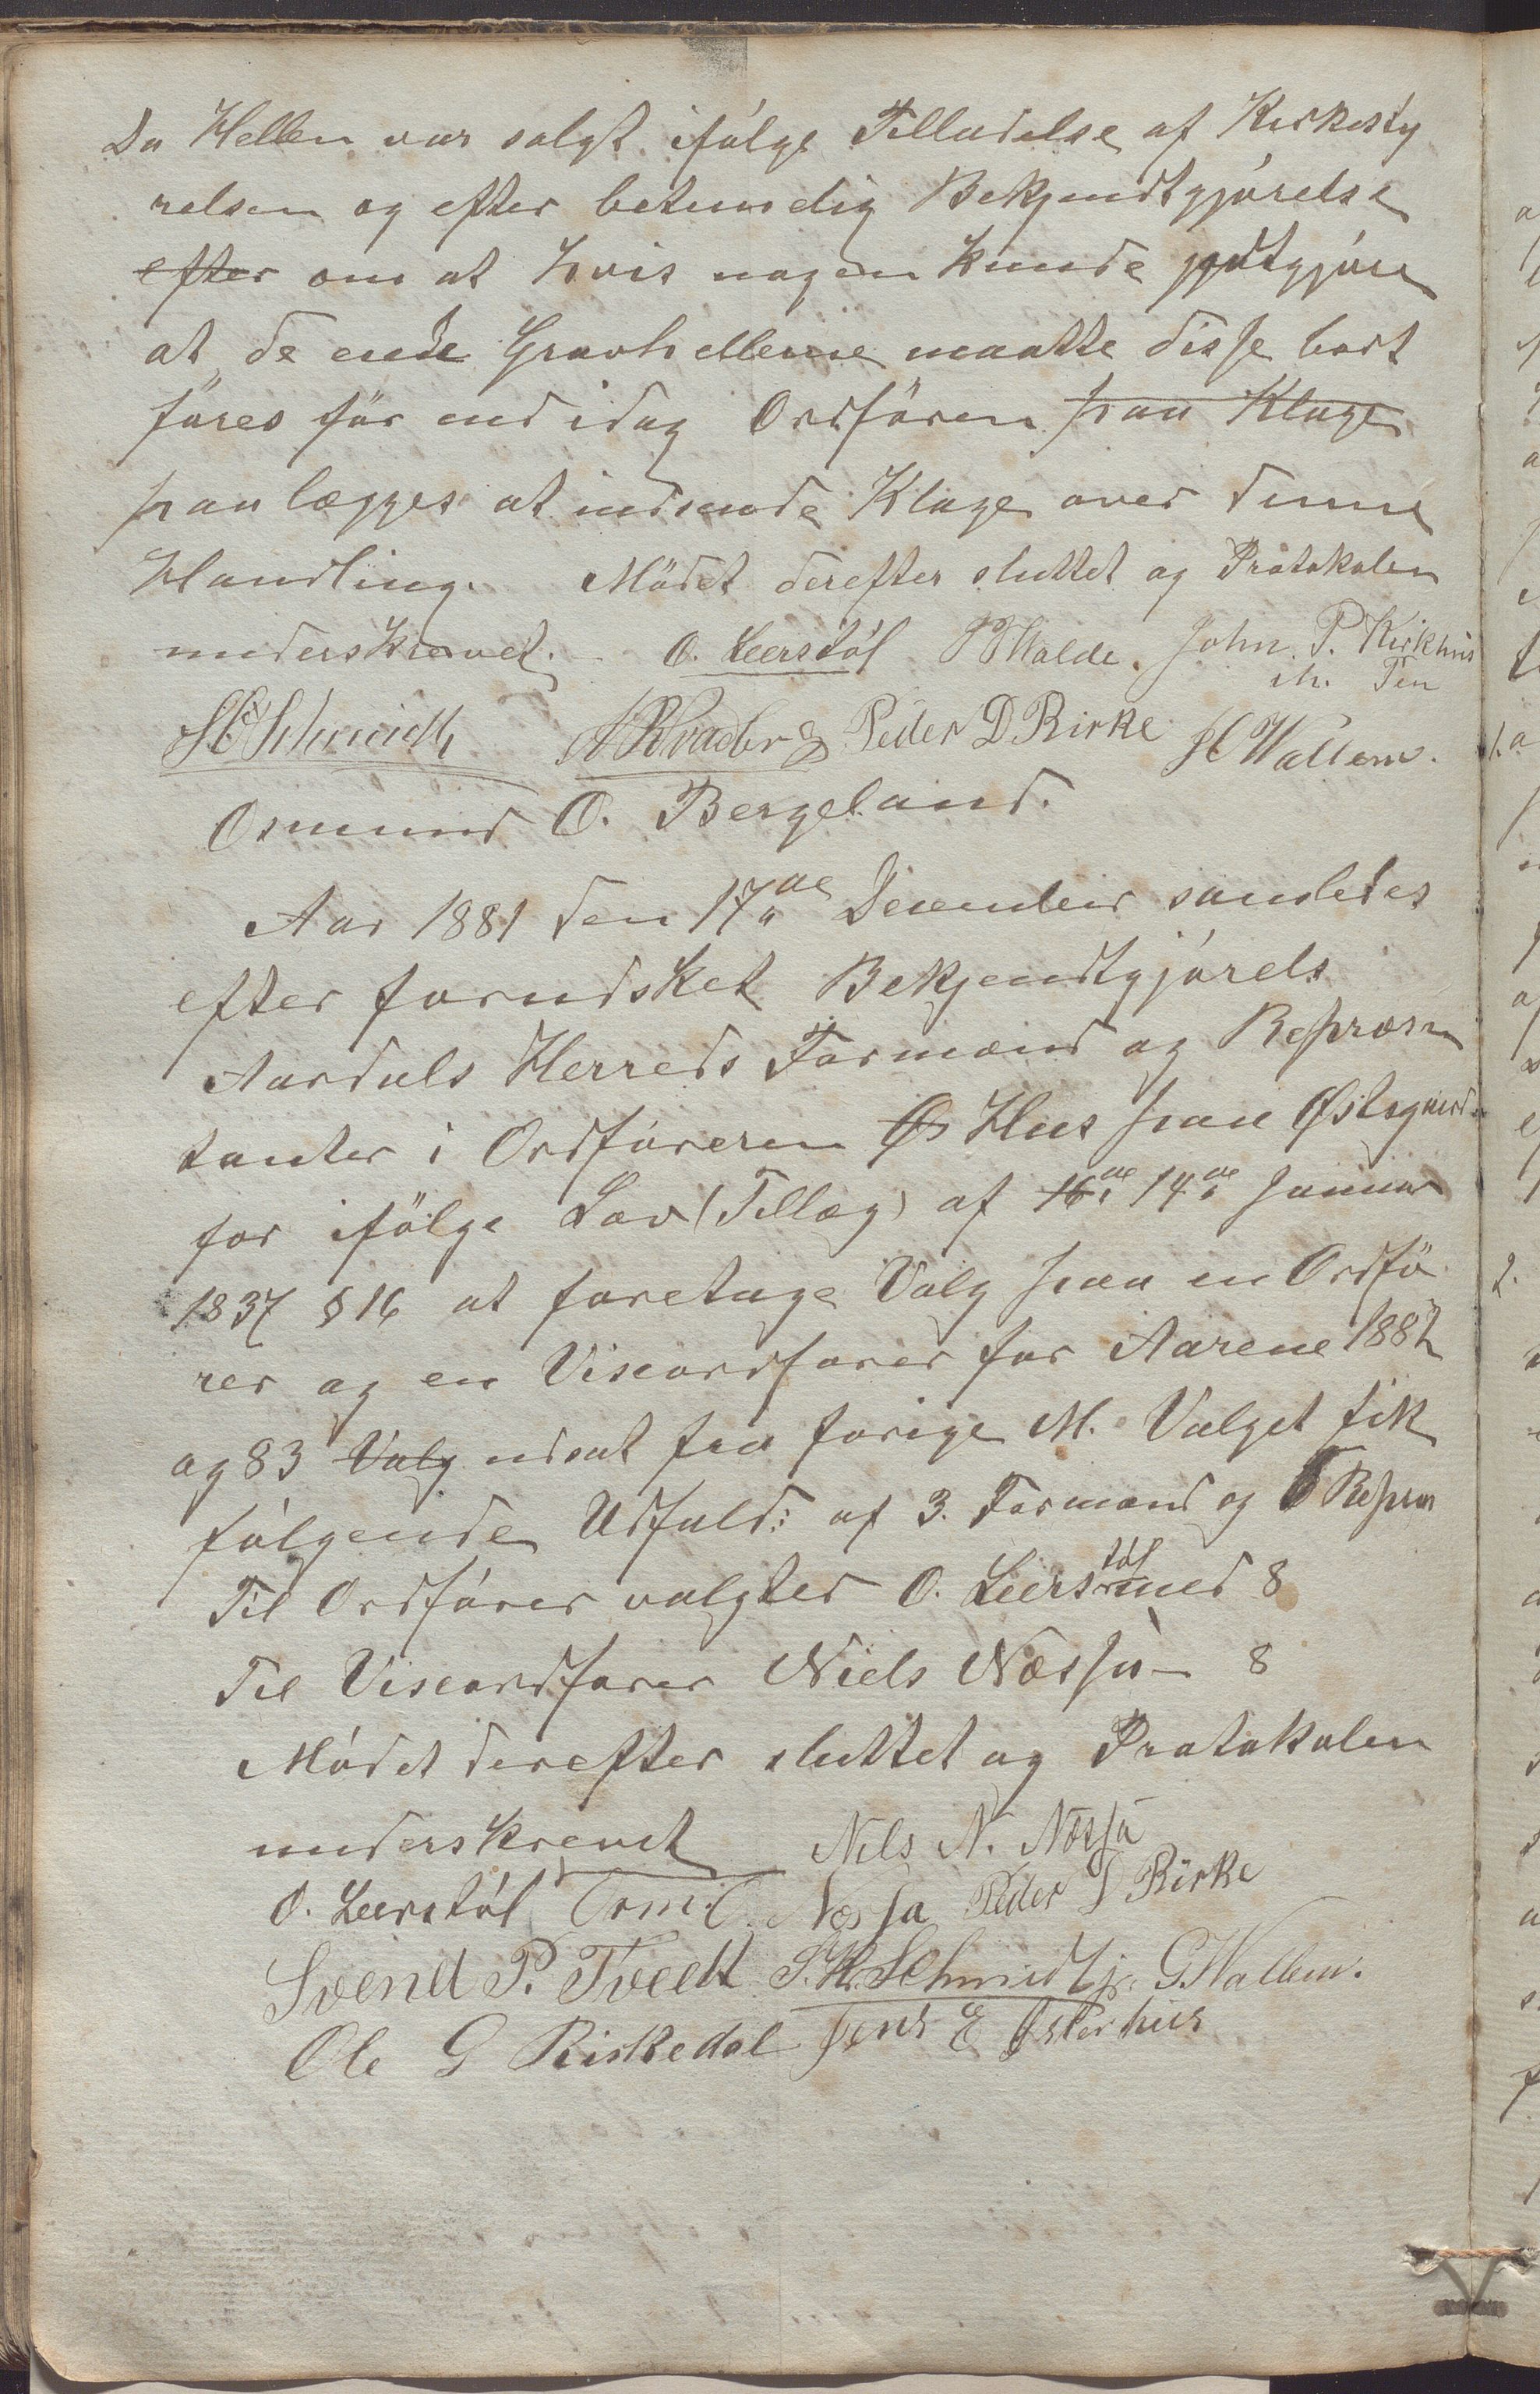 Da Hellen var solgt ifølge Tilladelse af Kirkesty
relsen og efter betimelig Bekjendtgjørelse
efter om at hvis nogen kunde godtgjøre
at de eiede Gravhellerne maatte disse bort
føres før end idag Ordføren paa Klage
paalægges at indsende Klage over denne
Handling. Mødet derefter sluttet og Protokolen
underskrevet. O. Leerstøl Walde. John. P. Kirkhus
m. Pen
Schmidt Peder D Rirke Wallem.
Osmund O. Bergeland.
Aar 1881 den 17de Decembeir samledes
efter forudsket Bekjendtgjørels
Aardals Herreds Formænd og Repræsen
tanter i Ordføreren Ø Hus paa Østegaard
for ifølge Lov (Tillæg) af 16de 14de Januar
1837 § 16 at foretage Valg paa en Ordfø
rer og en Viseordfører for Aarene 1882
og 83 Valg udsat fra forige M. Valget fik
følgende Udfald: af 3. Formænd og 6 Repræs
Til Ordfører valgtes O. Leerstøl med 8
Til Viseordfører Niels Næssa – 8
Mødet derefter sluttet og Protokolen
underskrevet Nils N. Næssa
O. Leerstøl Næssa Peder D Rirke
Svend P. Tvedt S. H. Schmidt jr. G. Wallem.
Ole G Riskedal Jens E Østerhus